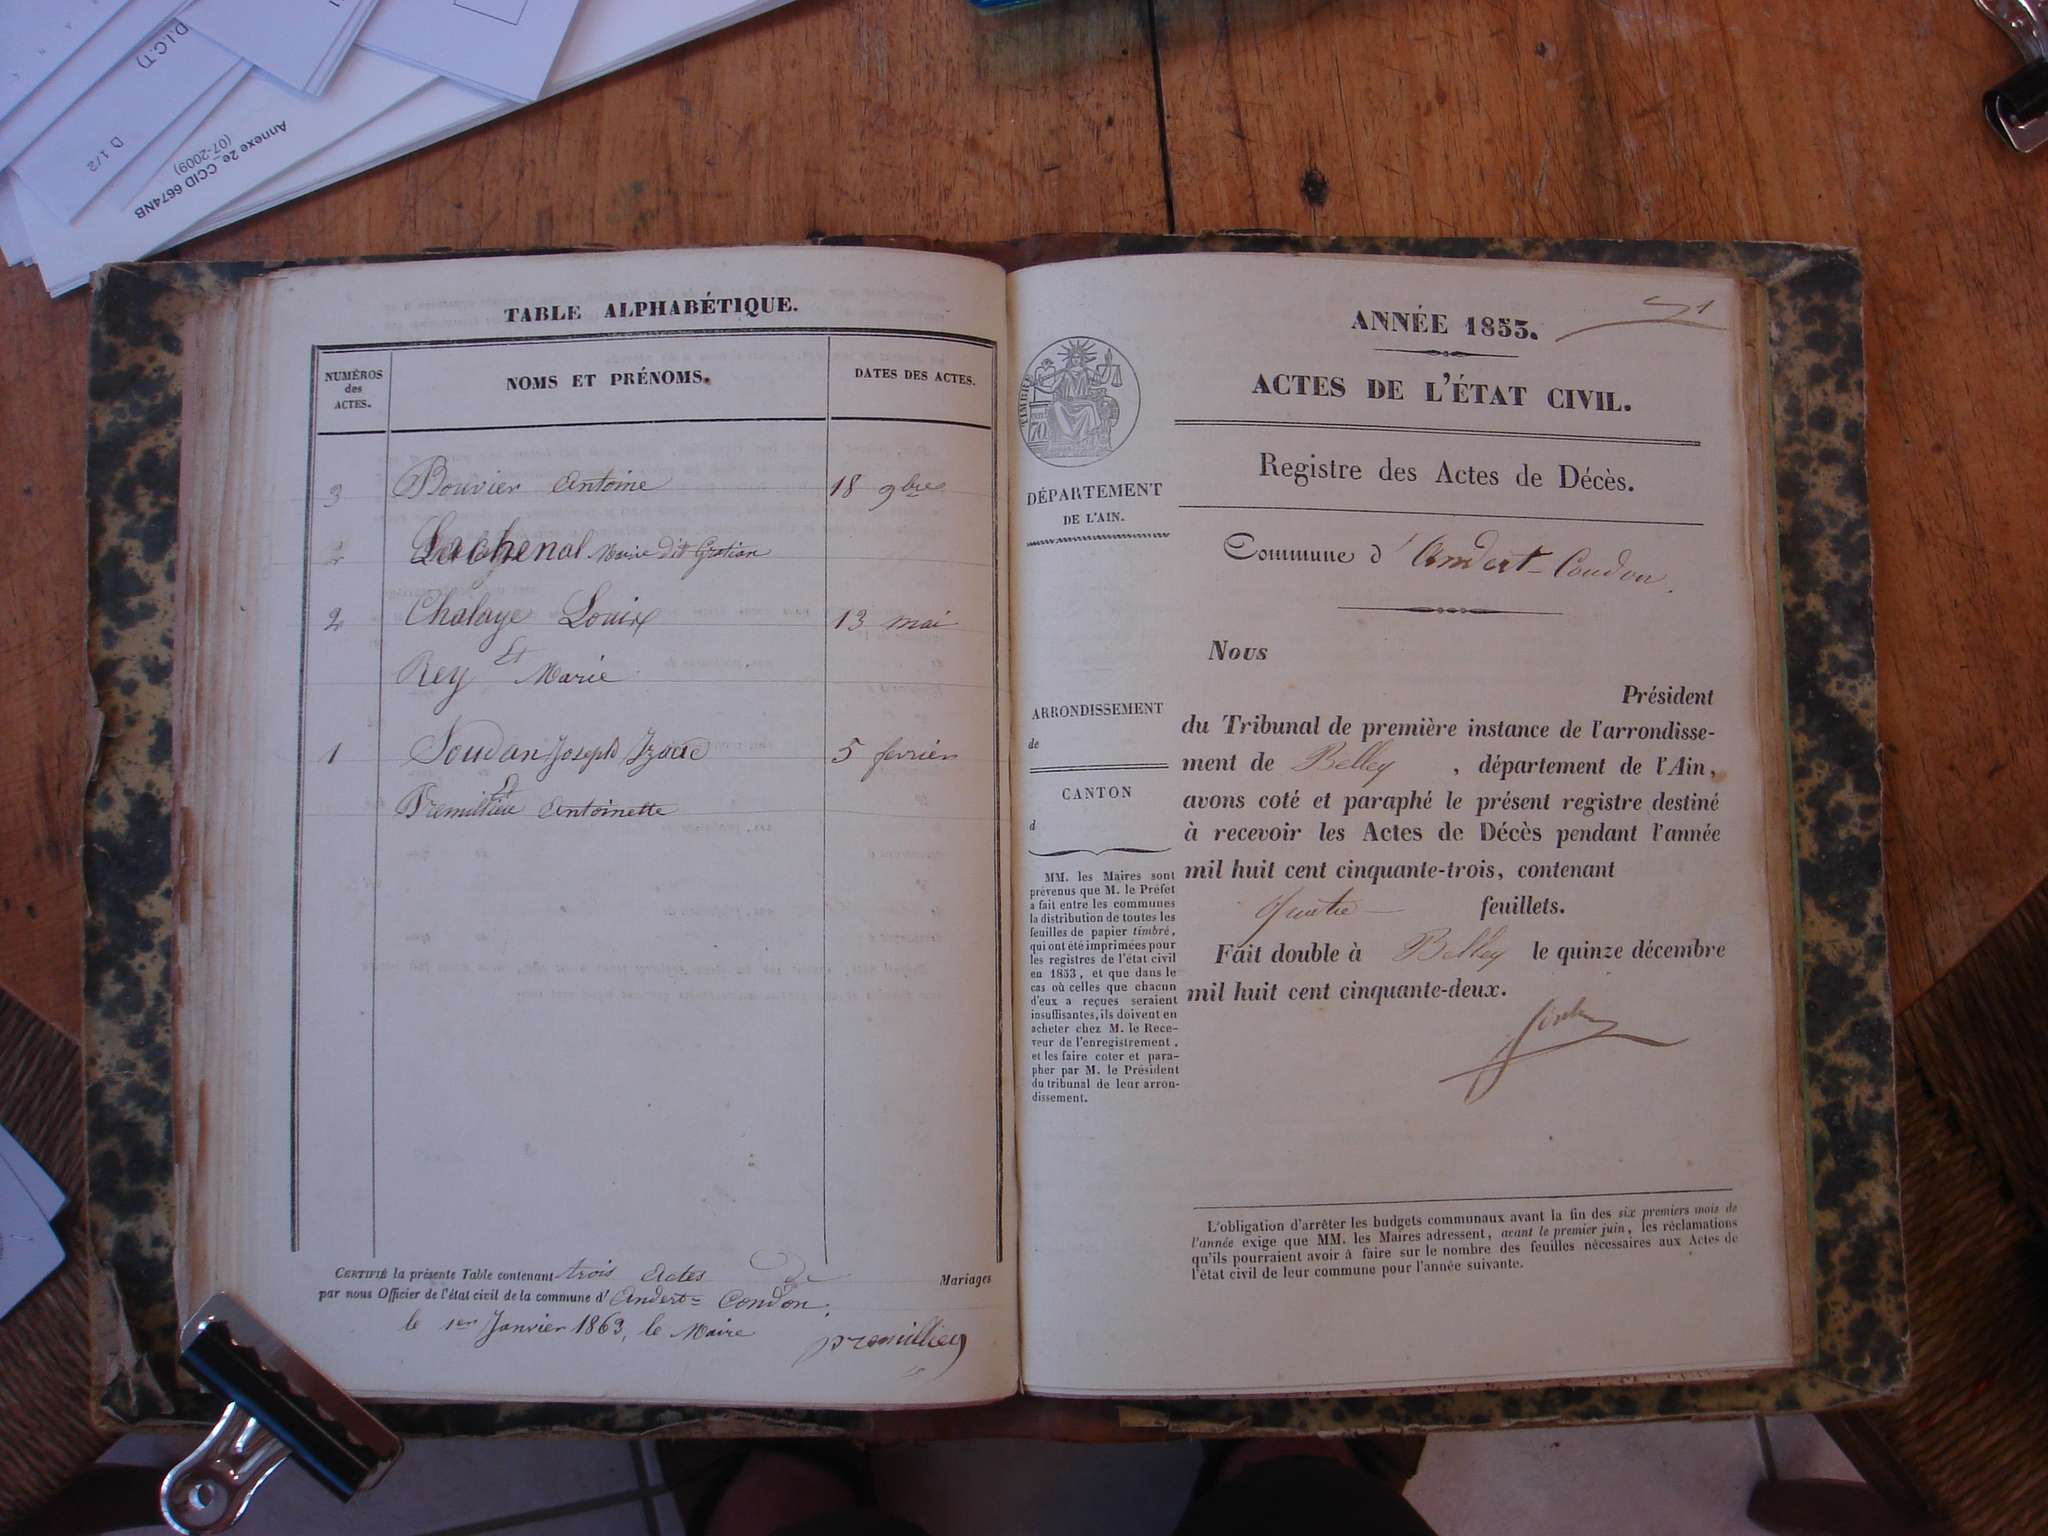 D.I.C.T)
D 1/2
Annexe 2e CCID 6674NB
(07-2009)
TABLE ALPHABÉTIQUE.
NUMÉROS
des
ACTES.
NOMS ET PRÉNOMS.
DATES DES ACTES.
3 Bouvier Antoine 18 9bre
Lachenal Marie dit Gratian
2 Chalaye Louis 13 mai
Et
Rey Marie
1 Soudan Joseph Izaac 5 fevrier
Et
Premillieu Antoinette
CERTIFIÉ la présente Table contenant trois Actes De Mariages
par nous Officier de l'état civil de la commune d'Andert-Condon.
le 1er Janvier 1863, le Maire
premillieu
ANNÉE 1853.
ACTES DE L'ÉTAT CIVIL.
TIMBRE
70
Registre des Actes de Décès.
DÉPARTEMENT
DE L'AIN.
Commune d'Andert-Condon
Nous
Président
ARRONDISSEMENT
de
CANTON
d
du Tribunal de première instance de l'arrondisse-
ment de Belley, département de l'Ain,
avons coté et paraphé le présent registre destiné
à recevoir les Actes de Décès pendant l'année
mil huit cent cinquante-trois, contenant
quatre feuillets.
Fait double à Belley le quinze décembre
mil huit cent cinquante-deux.
MM. les Maires sont
prévenus que M. le Préfet
a fait entre les communes
la distribution de toutes les
feuilles de papier timbré,
qui ont été imprimées pour
les registres de l'état civil
en 1853, et que dans le
cas où celles que chacun
d'eux a reçues seraient
insuffisantes, ils doivent en
acheter chez M. le Rece-
veur de l'enregistrement,
et les faire coter et para-
pher par M. le Président
du tribunal de leur arron-
dissement.
L'obligation d'arrêter les budgets communaux avant la fin des six premiers mois de
l'année exige que MM. les Maires adressent, avant le premier juin, les réclamations
qu'ils pourraient avoir à faire sur le nombre des feuilles nécessaires aux Actes de
l'état civil de leur commune pour l'année suivante.